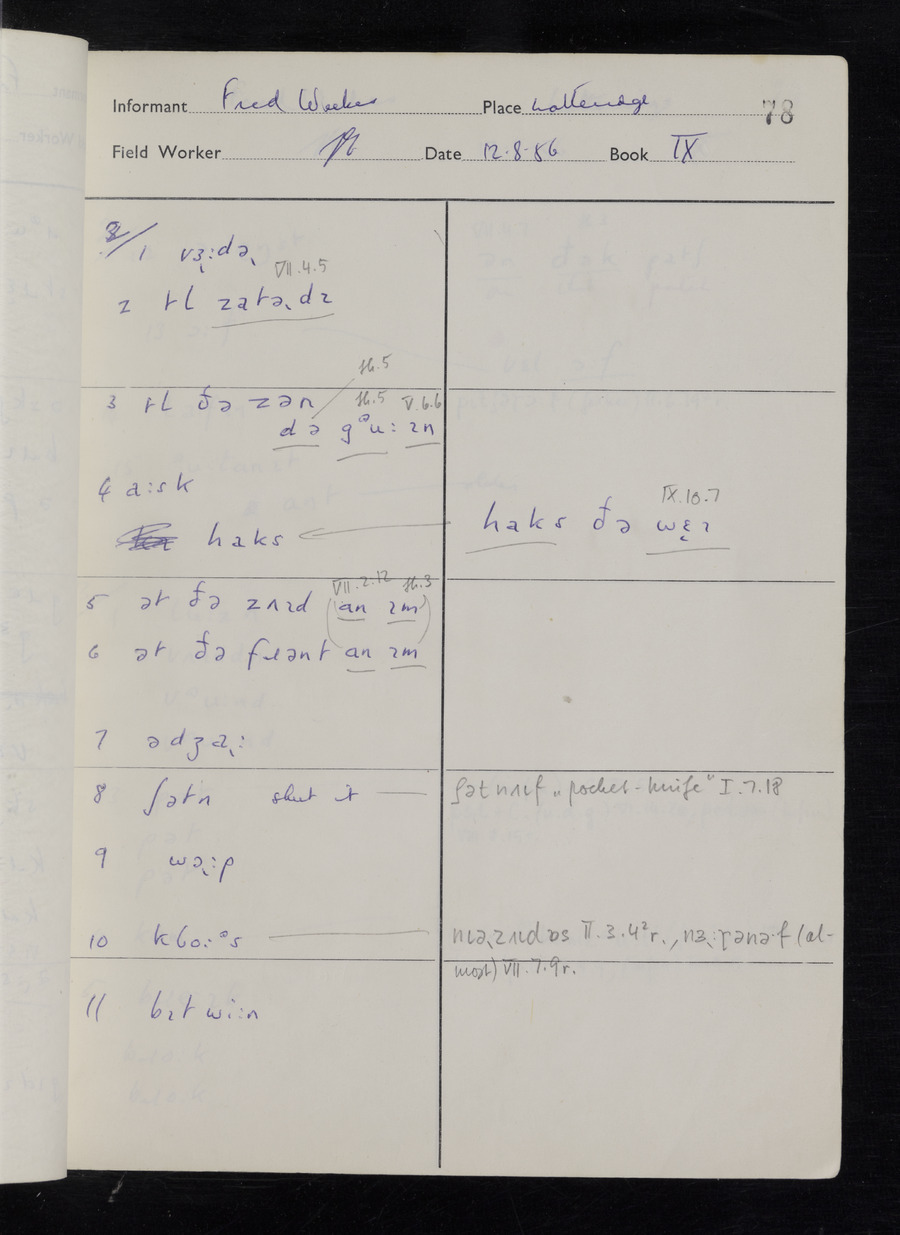 Informant Fred Weekes Place Latteridge 78
Field Worker Date 12.8.56 Book IX
2/ 1 vɜ˞ːdə˞
VII.4.5
2 tɪ zatə˞dɪ
ib.5
3 tɪ ðə zən ib.5 V.6.6
də gᵊuː ɪn
4 aːsk
IX.10.7
haks haks ðə wɛ˞ɪ
VII.2.12 ib.3
5 ət ðə zʌɪd (an ɪm)
6 ət ðə fɹənt an ɪm
7 ədʒa˞ː
8 ʃətn shut it ʃətnʌɪf "pocket-knife" I.7.18
9 wə˞ːp
10 kloːᵊs nɪə˞zʌɪdəs II.3.4²r., nɜ˞ːɣənəˑf (al-
most) VII.7.9r.
11 bɪtwiːn